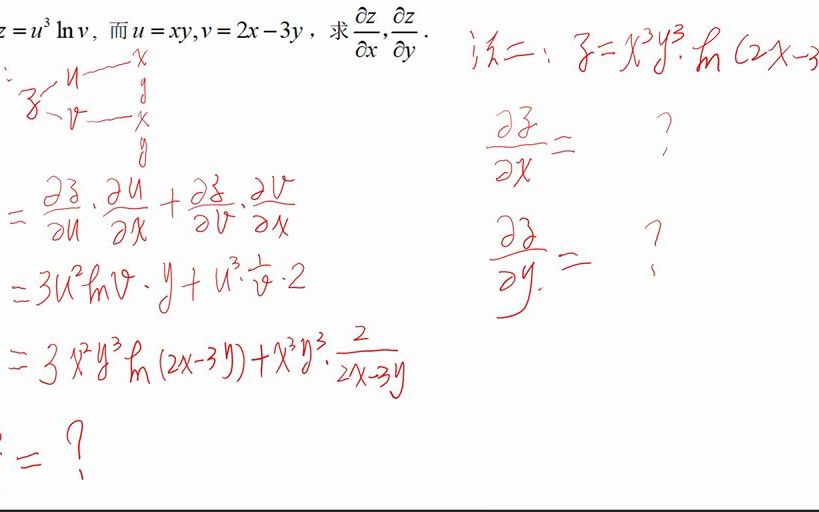 z = u³ ln v, 而 u = xy, v = 2x − 3y, 求 ∂z/∂x, ∂z/∂y.
z u x
y
v x
y
= ∂z/∂u · ∂u/∂x + ∂z/∂v · ∂v/∂x
= 3u² ln v · y + u³ · 1/v · 2
= 3x²y³ ln (2x-3y) + x³y³ · 2/(2x-3y)
= ?
法二: z = x³y³ · ln (2x-3
∂z/∂x = ?
∂z/∂y = ?